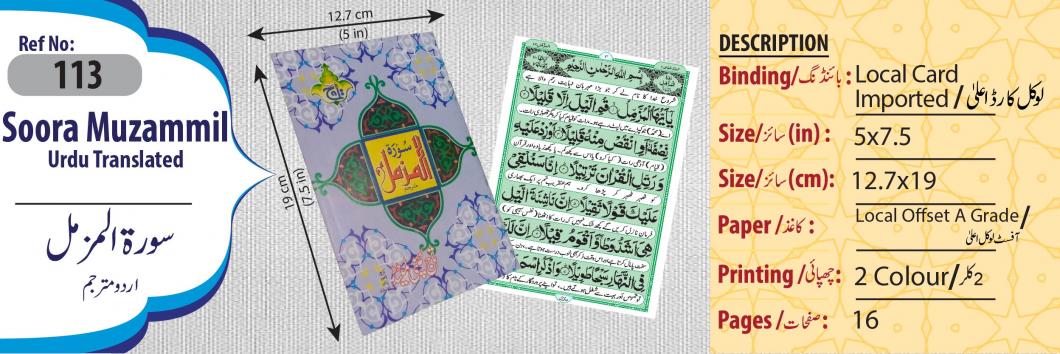 Ref No:
113
Soora Muzammil
Urdu Translated
سورة المزمل
اردو مترجم
12.7 cm
(5 in)
19 cm
(7.5 in)
سُورَة
المزمل
بِسْمِ اللهِ الرَّحْمٰنِ الرَّحِيْمِ
يٰۤاَيُّهَا الْمُزَّمِّلُ قُمِ الَّيْلَ اِلَّا قَلِيْلًا
نِّصْفَهٗۤ اَوِ انْقُصْ مِنْهُ قَلِيْلًا اَوْ زِدْ عَلَيْهِ
وَ رَتِّلِ الْقُرْاٰنَ تَرْتِيْلًا اِنَّا سَنُلْقِيْ
عَلَيْكَ قَوْلًا ثَقِيْلًا اِنَّ نَاشِئَةَ الَّيْلِ
هِيَ اَشَدُّ وَطْاً وَّ اَقْوَمُ قِيْلًا اِنَّ لَكَ
فِي النَّهَارِ سَبْحًا طَوِيْلًا وَ اذْكُرِ اسْمَ
DESCRIPTION
Binding/بائنڈنگ: Local Card
Imported / لوکل کارڈ اعلیٰ
Size/سائز(in): 5x7.5
Size/سائز(cm): 12.7x19
Paper /کاغذ: Local Offset A Grade/
آفسٹ لوکل اعلیٰ
Printing /چھپائی: 2 Colour/2کلر
Pages /صفحات: 16